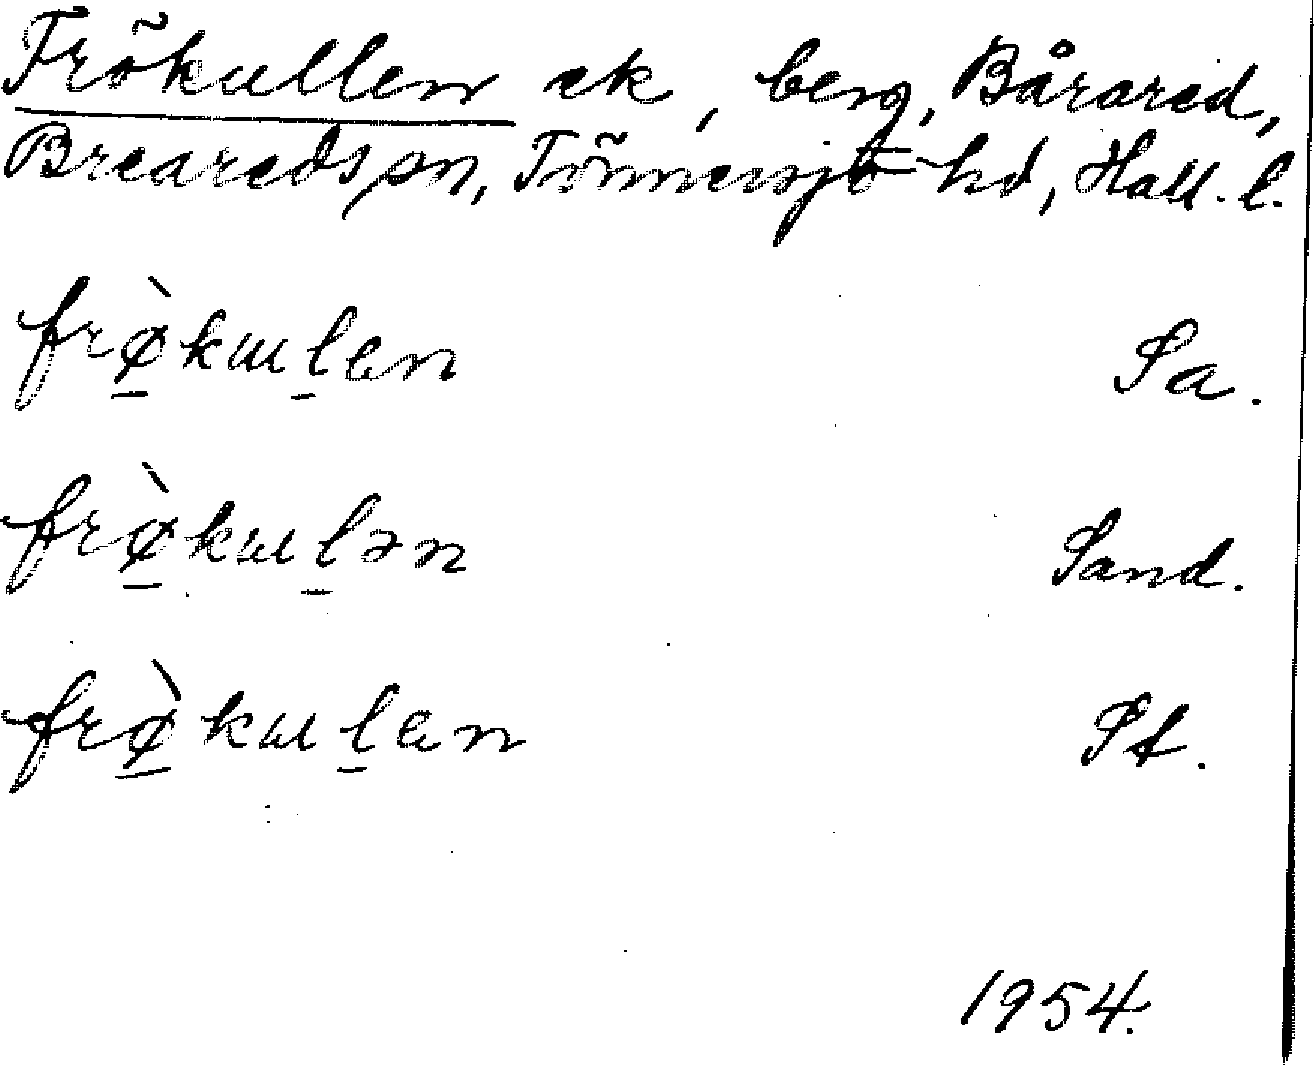 Frökullen ek, berg, Bårared,
Breareds sn, Tönnersjö hd, Hall. l.
frø̠̀kɯl̠ɐn Sa.
frø̠̀kɯl̠ən Sand.
frø̠̀kɯl̠ɐn St.
1954.